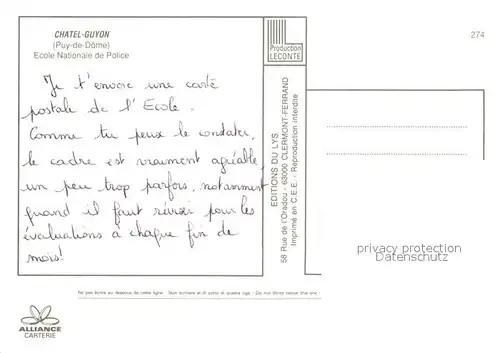 CHATEL-GUYON
(Puy-de-Dôme)
Ecole Nationale de Police
Je t'envoie une carte
postale de l'Ecole.
Comme tu peux le constater,
le cadre est vraiment agréable
un peu trop parfois, notamment
quand il faut réviser pour les
évaluations à chaque fin de
mois!
Production
LECONTE
EDITIONS DU LYS
58 Rue de l'Oradou - 63000 CLERMONT-FERRAND
Imprimé en C.E.E. - Reproduction interdite
274
privacy protection
Datenschutz
Ne pas écrire au dessous de cette ligne. Non scrivere al di sotto di questa riga. Do not write below this line
ALLIANCE
CARTERIE